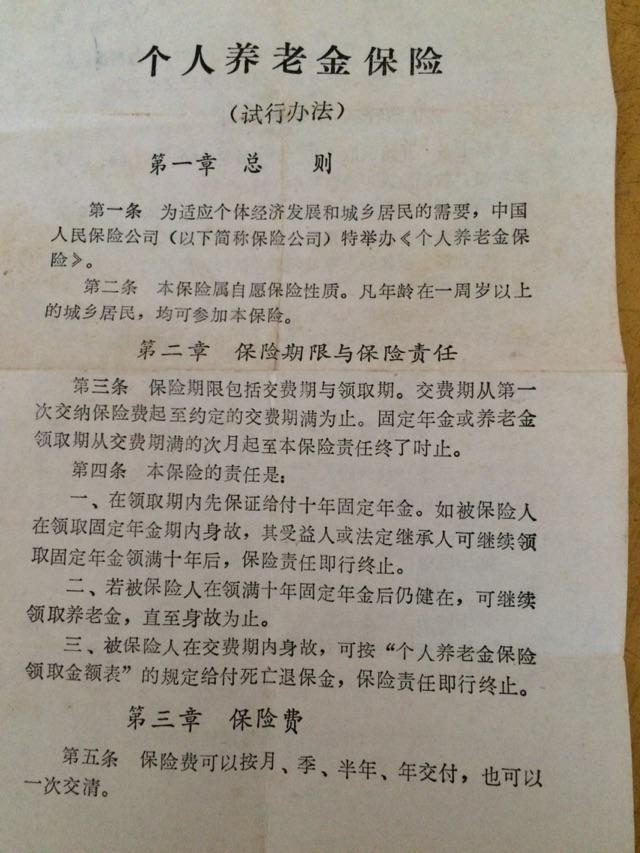 个人养老金保险
（试行办法）
第一章 总 则
第一条 为适应个体经济发展和城乡居民的需要，中国
人民保险公司（以下简称保险公司）特举办《个人养老金保
险》。
第二条 本保险属自愿保险性质。凡年龄在一周岁以上
的城乡居民，均可参加本保险。
第二章 保险期限与保险责任
第三条 保险期限包括交费期与领取期。交费期从第一
次交纳保险费起至约定的交费期满为止。固定年金或养老金
领取期从交费期满的次月起至本保险责任终了时止。
第四条 本保险的责任是：
一、在领取期内先保证给付十年固定年金。如被保险人
在领取固定年金期内身故，其受益人或法定继承人可继续领
取固定年金领满十年后，保险责任即行终止。
二、若被保险人在领满十年固定年金后仍健在，可继续
领取养老金，直至身故为止。
三、被保险人在交费期内身故，可按“个人养老金保险
领取金额表”的规定给付死亡退保金，保险责任即行终止。
第三章 保险费
第五条 保险费可以按月、季、半年、年交付，也可以
一次交清。